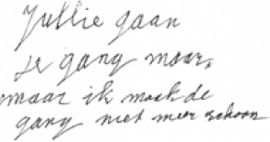 Jullie gaan
je gang maar,
maar ik maak de
gang niet meer schoon